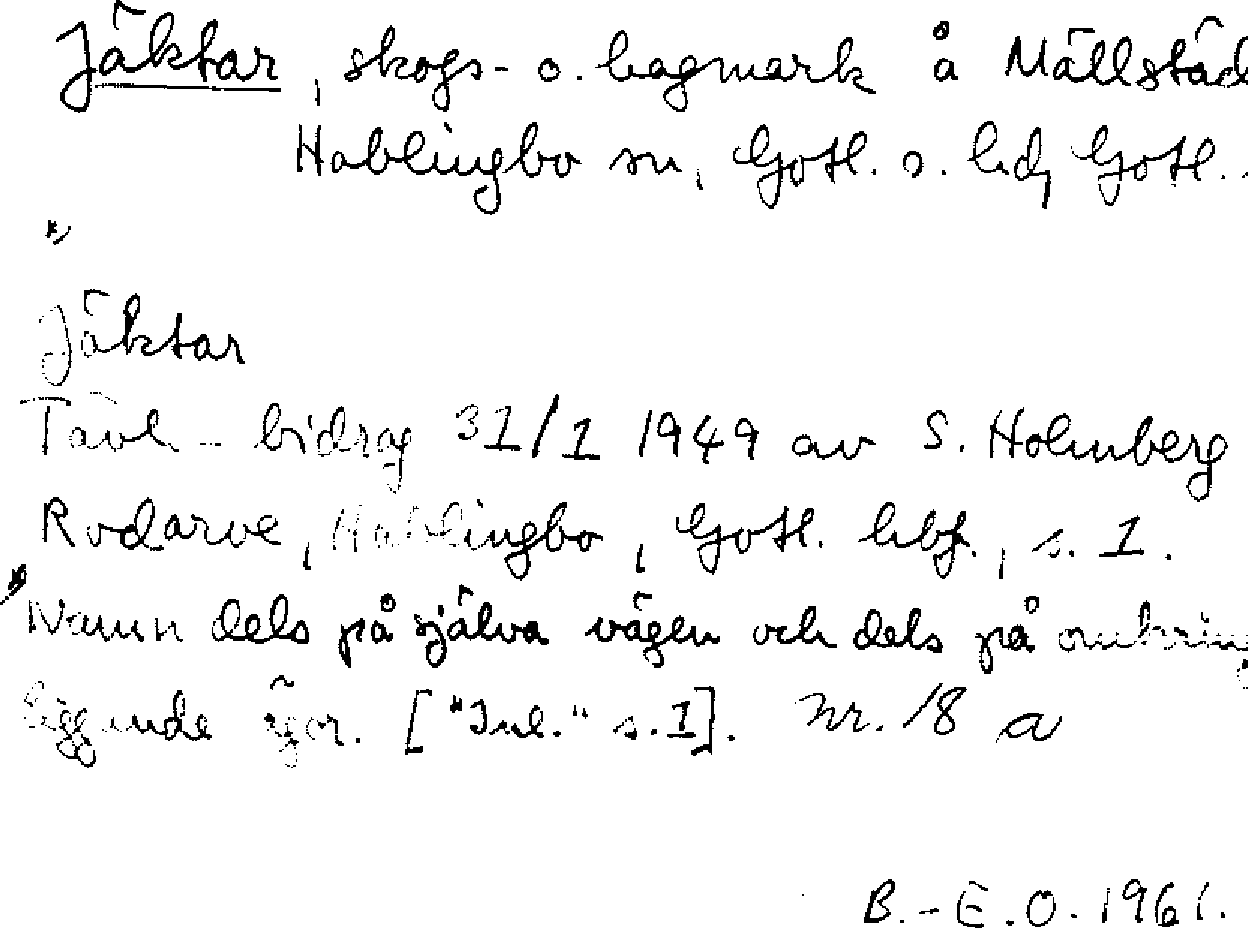 Jäktar, skogs- o. hagmark å Mällstäd
Hablingbo sn, Gotl. s. hd, Gotl.
"
Jäktar
Tävl-bidrag 31/1 1949 av S. Holmberg
Rodarve, Hablingbo, Gotl. hbf., s. 1.
"Namn dels på själva vägen och dels på omkring
liggande ägor. ["Inl." s. 1]. Nr. 18 a
B.-E.O. 1961.